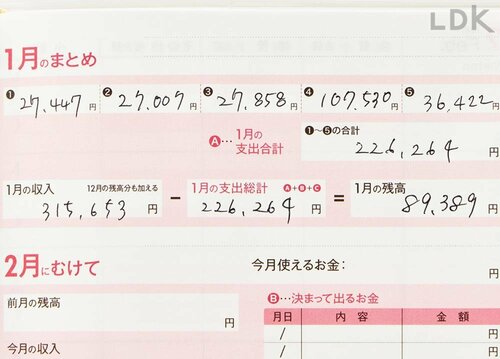 LDK
1月のまとめ
❶ 27,447円 ❷ 27,007円 ❸ 27,858円 ❹ 107,530円 ❺ 36,422円
A…1月の支出合計 ❶〜❺の合計 226,264円
1月の収入 12月の残高分も加える 315,653円 − 1月の支出総計 A+B+C 226,264円 = 1月の残高 89,389円
2月にむけて
今月使えるお金: 円
前月の残高 円
B…決まって出るお金
月日 内容 金額
/ 円
今月の収入
/ 円